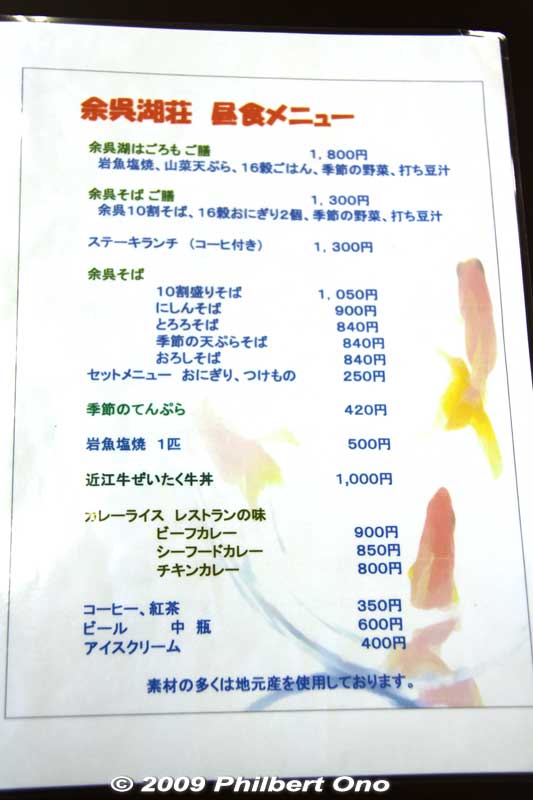 余呉湖荘 昼食メニュー
余呉湖はごろも ご膳 1,800円
岩魚塩焼、山菜天ぷら、16穀ごはん、季節の野菜、打ち豆汁
余呉そば ご膳 1,300円
余呉10割そば、16穀おにぎり2個、季節の野菜、打ち豆汁
ステーキランチ (コーヒ付き) 1,300円
余呉そば
10割盛りそば 1,050円
にしんそば 900円
とろろそば 840円
季節の天ぷらそば 840円
おろしそば 840円
セットメニュー おにぎり、つけもの 250円
季節のてんぷら 420円
岩魚塩焼 1匹 500円
近江牛ぜいたく牛丼 1,000円
カレーライス レストランの味
ビーフカレー 900円
シーフードカレー 850円
チキンカレー 800円
コーヒー、紅茶 350円
ビール 中 瓶 600円
アイスクリーム 400円
素材の多くは地元産を使用しております。
© 2009 Philbert Ono